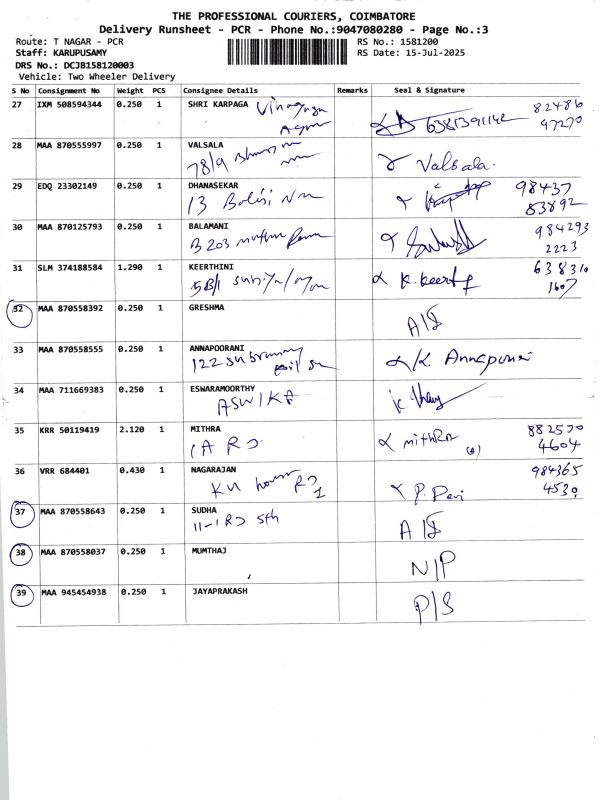 THE PROFESSIONAL COURIERS, COIMBATORE
Delivery Runsheet - PCR - Phone No.:9047080280 - Page No.:3
Route: T NAGAR - PCR RS No.: 1581200
Staff: KARUPUSAMY RS Date: 15-Jul-2025
DRS No.: DCJB158120003
Vehicle: Two Wheeler Delivery
S No Consignment No Weight PCS Consignee Details Remarks Seal & Signature
27 IXM 508594344 0.250 1 SHRI KARPAGA Vinayaga 82486
6381391142 97270
28 MAA 870555997 0.250 1 VALSALA
78/9 Valsala.
29 EDQ 23302149 0.250 1 DHANASEKAR 98437
13 53892
30 MAA 870125793 0.250 1 BALAMANI 984293
B 203 2223
31 SLM 374188584 1.290 1 KEERTHINI 638310
5B/1 K.Keerty 1607
32 MAA 870558392 0.250 1 GRESHMA
A/S
33 MAA 870558555 0.250 1 ANNAPOORANI
122 K. Annapoorni
34 MAA 711669383 0.250 1 ESWARAMOORTHY
ASWIKA
35 KRR 50119419 2.120 1 MITHRA 882570
1A RD mithRa 4604
36 VRR 684401 0.430 1 NAGARAJAN 984365
KU house P. Devi 4530
37 MAA 870558643 0.250 1 SUDHA
11-1 RD 5th A/S
38 MAA 870558037 0.250 1 MUMTHAJ
N/P
39 MAA 945454938 0.250 1 JAYAPRAKASH
P/S